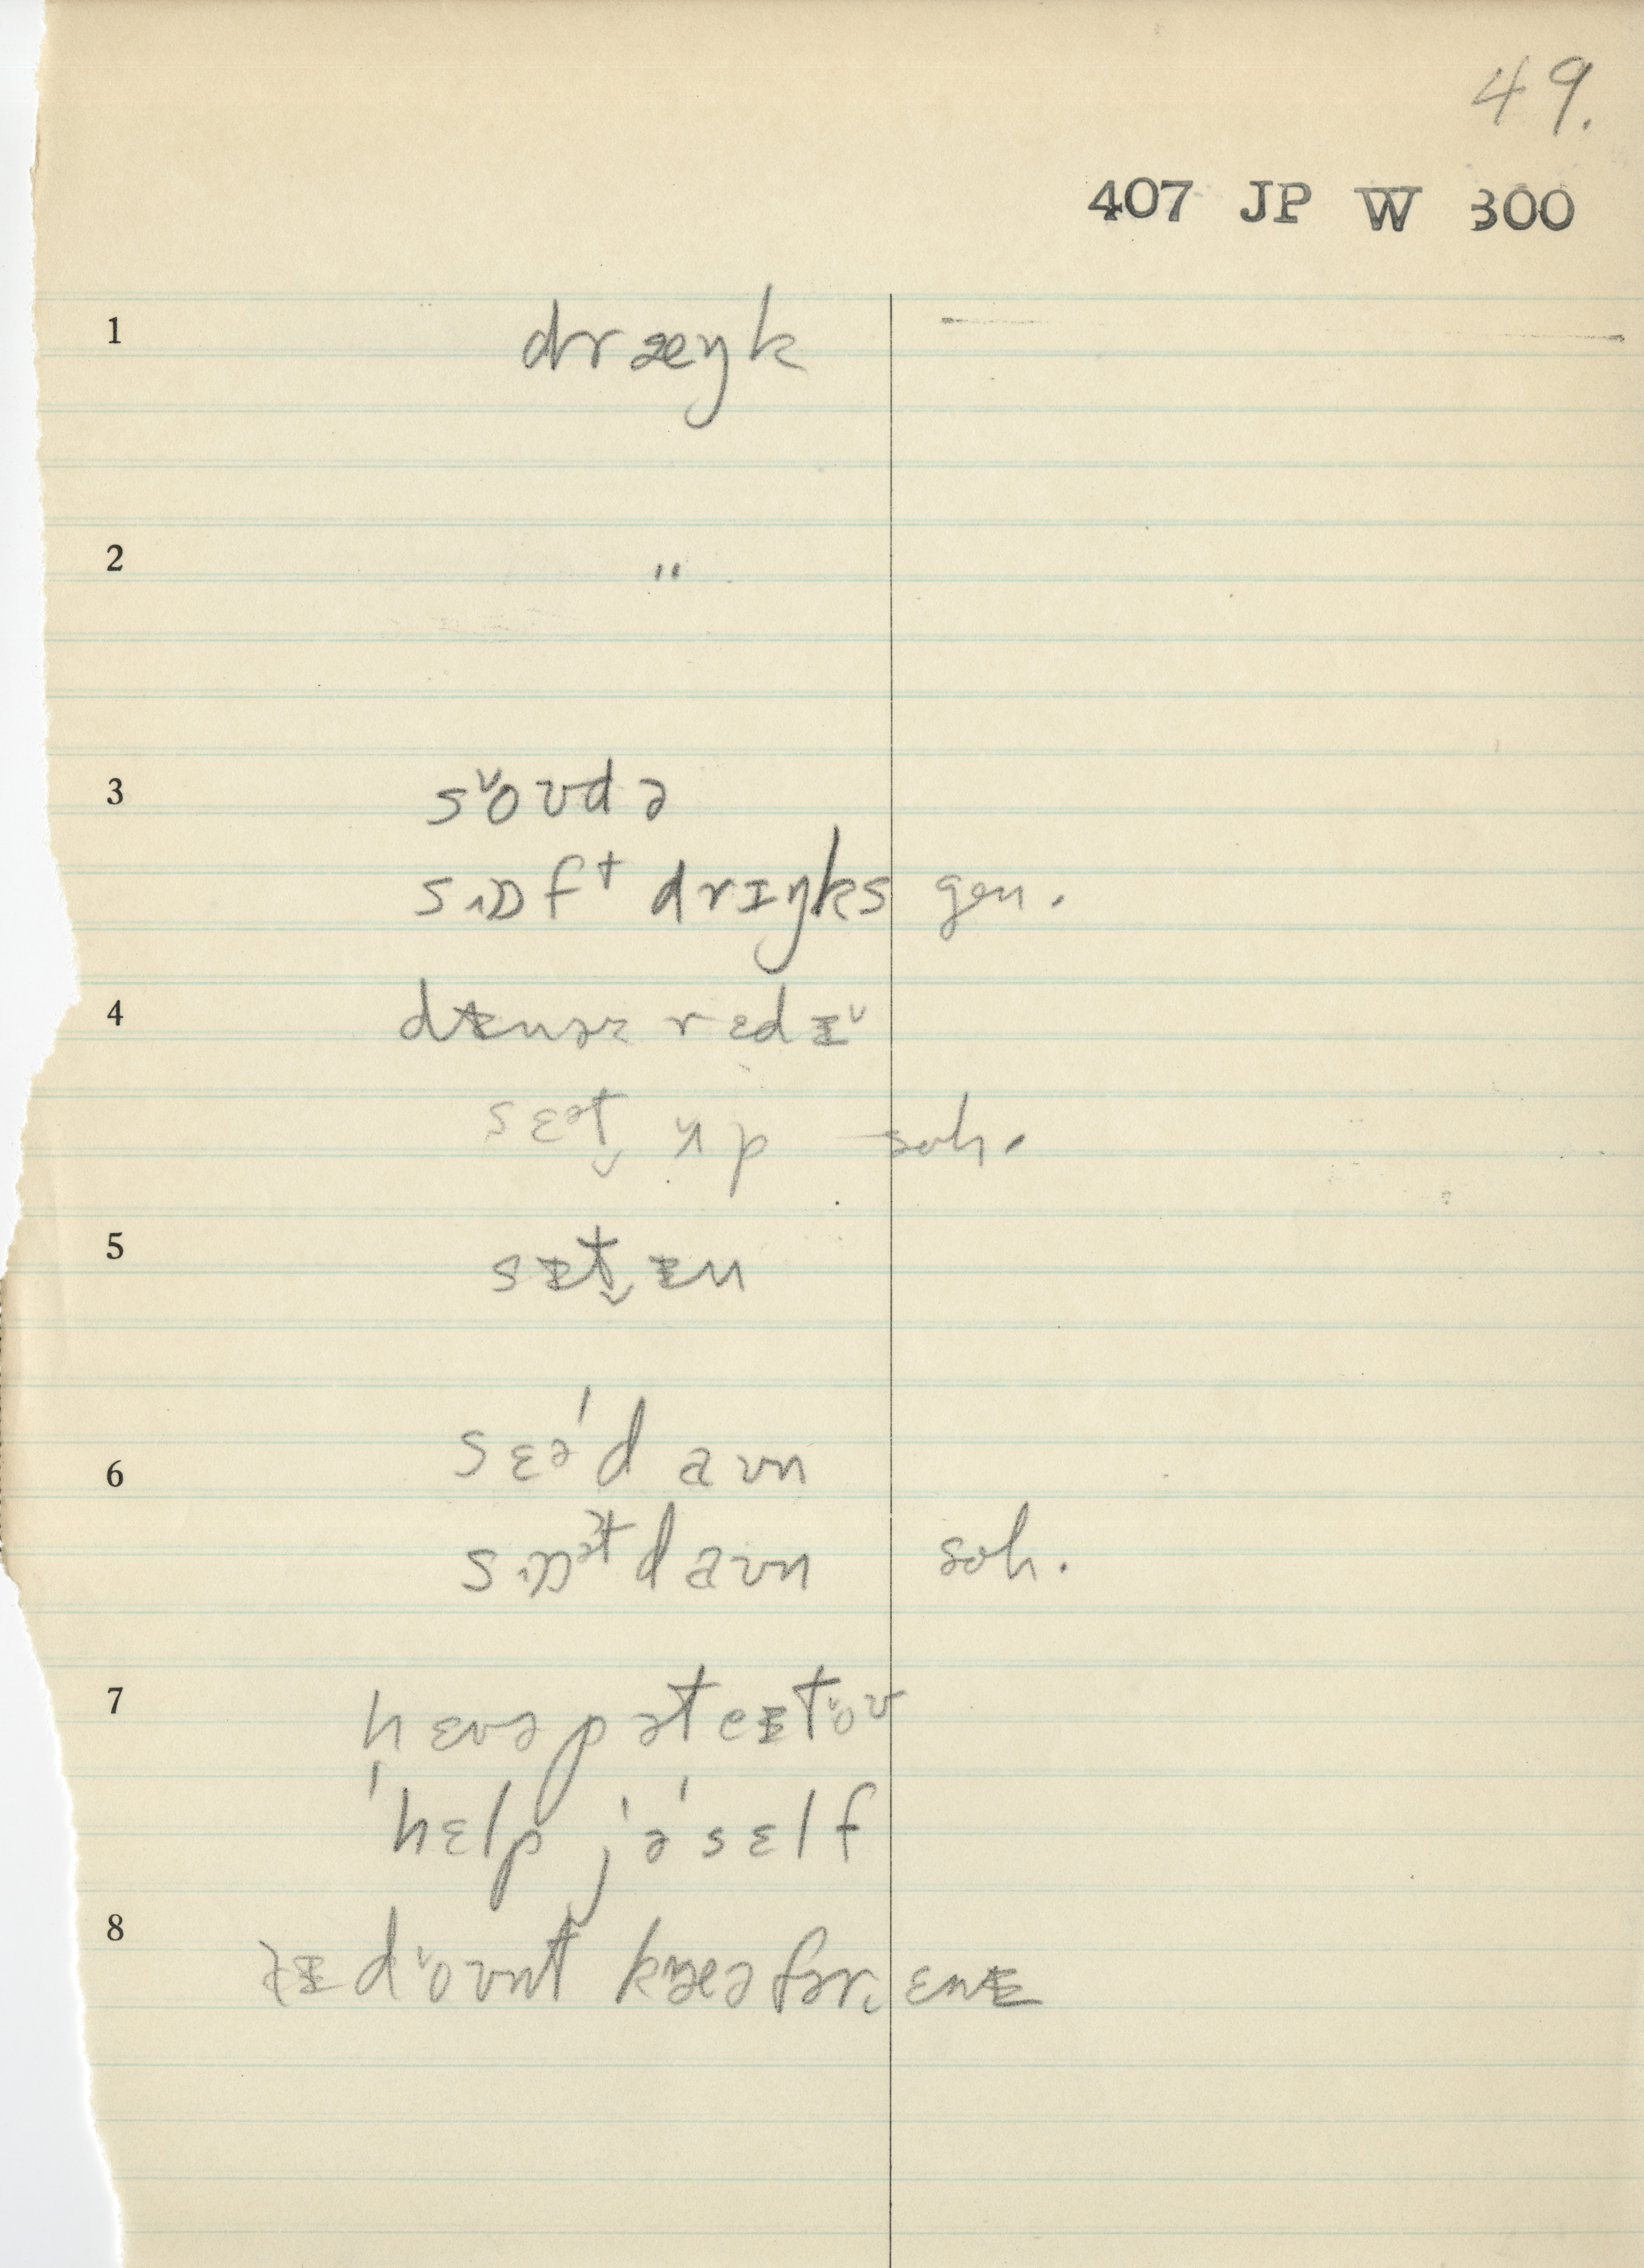 49.
407 JP W 300
1 dræŋk
2 "
3 sˇoʊdə
sɒft drɪŋks gen.
4 dɪnəz rɛdɪˇ
sɛət̬ ʌp soh.
5 sɪt̬ ɪn
6 sɛə'd aʊn
sɒət daʊn soh.
7 hɛvəpəteɪtˇoʊ
'hɛlp jə'sɛlf
8 dˇoʊnt kæə fər ɛnɪ